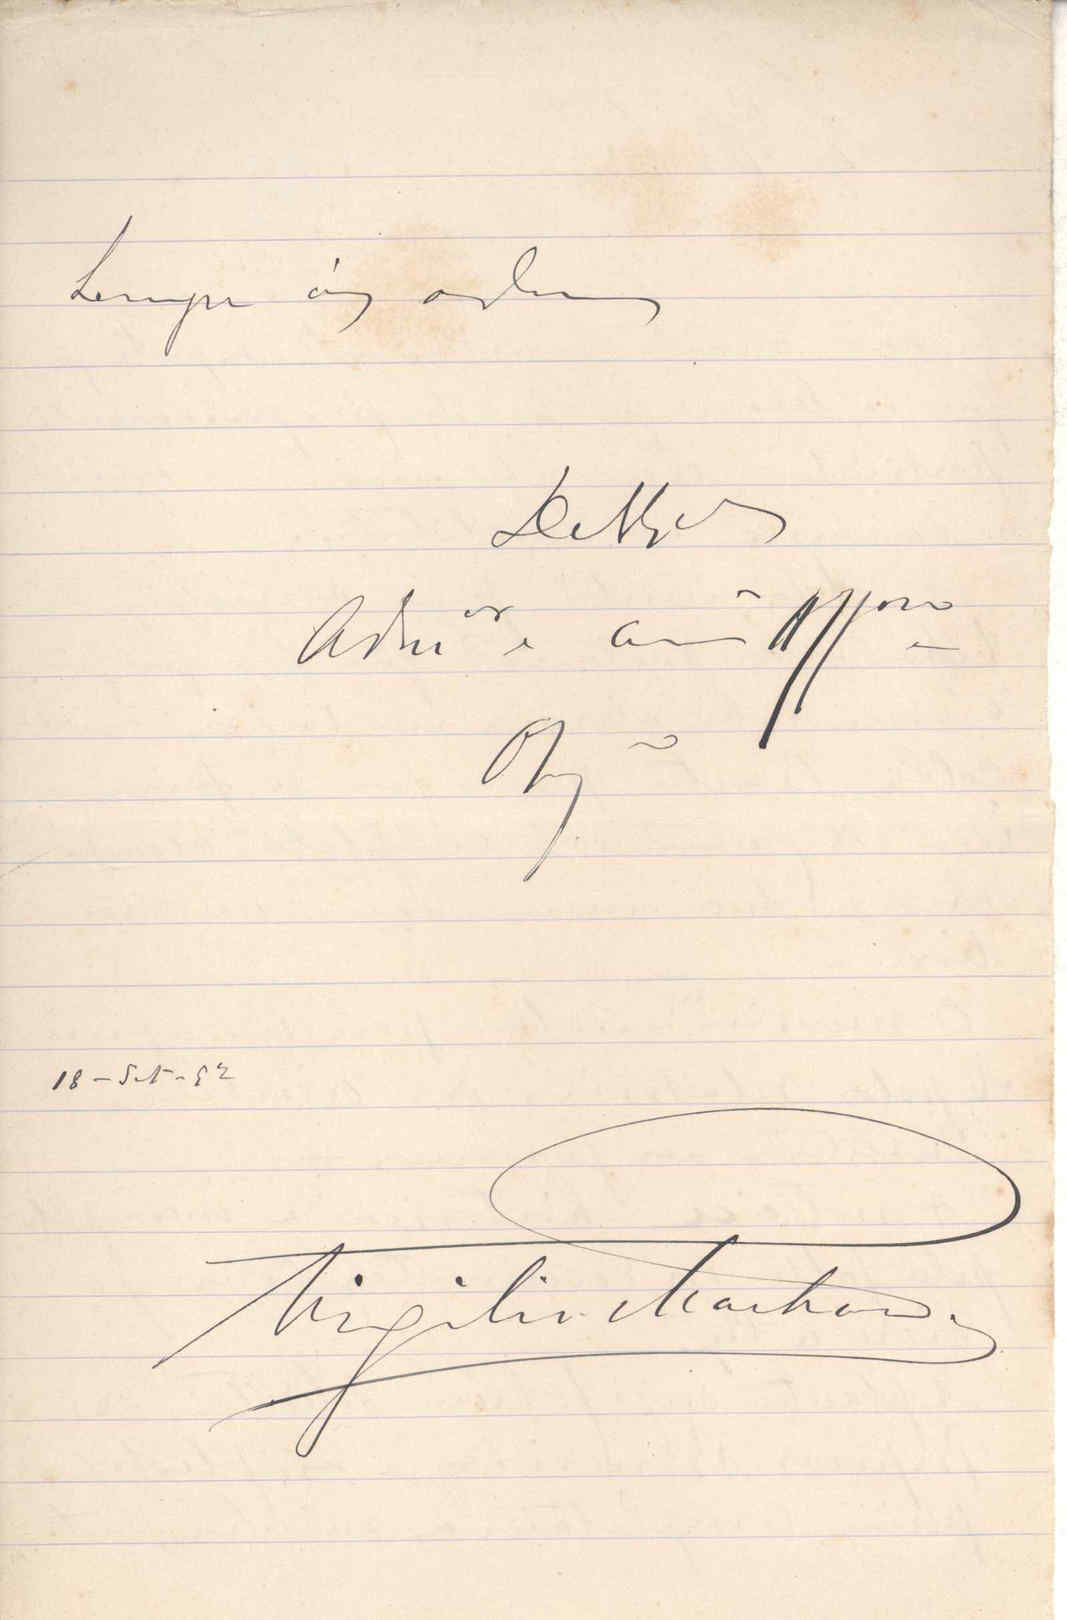 Sempre ás ordens
De V. Ex.ª
Adm.or e am.º Aff.mo
Obg.º
18-Set-92
Virgilio Machado